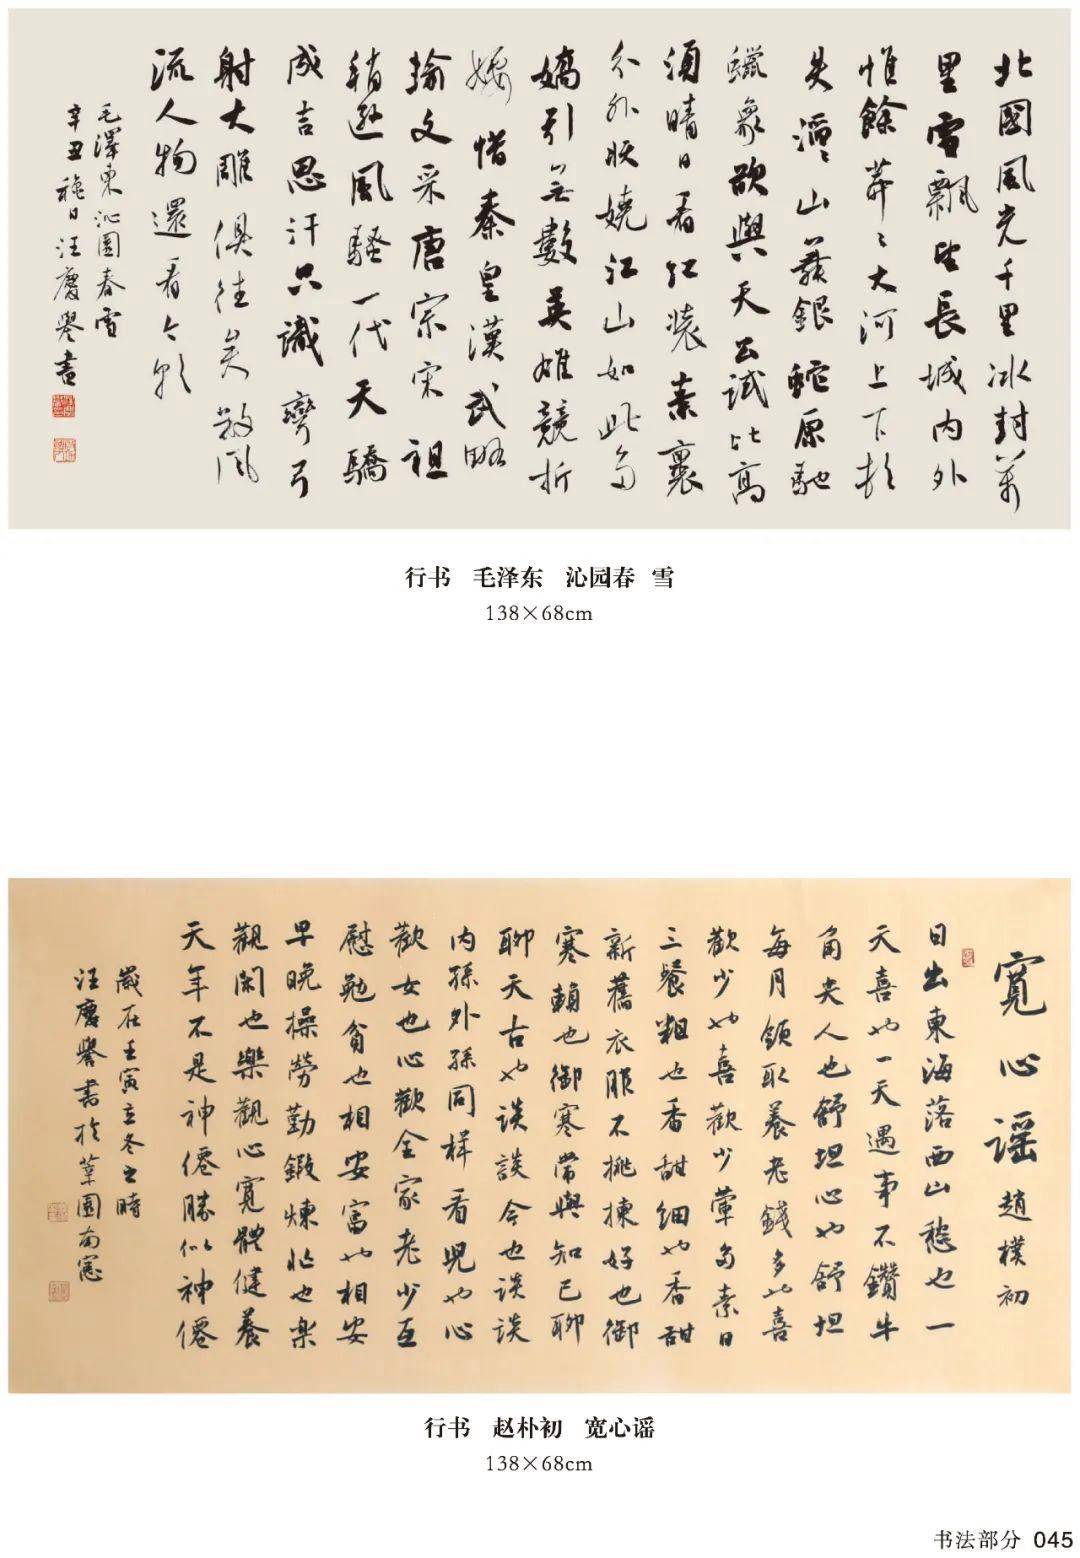 北國風光千里冰封萬
里雪飄望長城内外
惟餘莽〻大河上下頓
失滔〻山舞銀蛇原馳
蠟象欲與天公試比高
須晴日看紅裝素裹
分外妖嬈江山如此多
嬌引無數英雄競折
腰惜秦皇漢武略
輸文采唐宗宋祖
稍遜風騷一代天驕
成吉思汗只識彎弓
射大雕俱往矣數風
流人物還看今朝
毛澤東沁園春雪
辛丑穐日汪慶譽書
行书 毛泽东 沁园春 雪
138×68cm
寬心謡 趙樸初
日出東海落西山愁也一
天喜也一天遇事不鑽牛
角尖人也舒坦心也舒坦
每月領取養老錢多也喜
歡少也喜歡少葷多素日
三餐粗也香甜細也香甜
新舊衣服不挑揀好也御
寒賴也御寒常與知己聊
聊天古也談談今也談談
内孫外孫同樣看兒也心
歡女也心歡全家老少互
慰勉貧也相安富也相安
早晚操勞勤鍛煉忙也樂
觀閑也樂觀心寬體健養
天年不是神僊勝似神僊
歲在壬寅立冬之時
汪慶譽書於園南窓
行书 赵朴初 宽心谣
138×68cm
书法部分 045